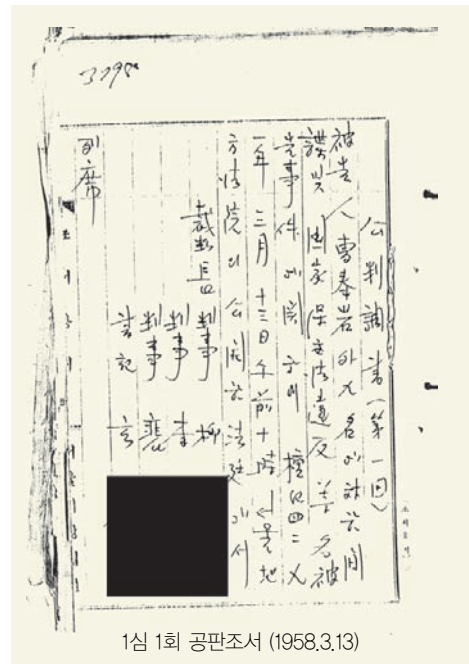 3798
公判調書(第一回)
被告人 曺奉岩 外 九名에 対한 間
諜 및 国家保安法違反 等 各 被
告事件에 関하여 檀紀四二九
一年 三月 十三日 午前十時 서울地
方法院의 公開한 法廷에서
裁判長 判事 柳
判事 李
判事 裵
書記
列席
1심 1회 공판조서 (1958.3.13)